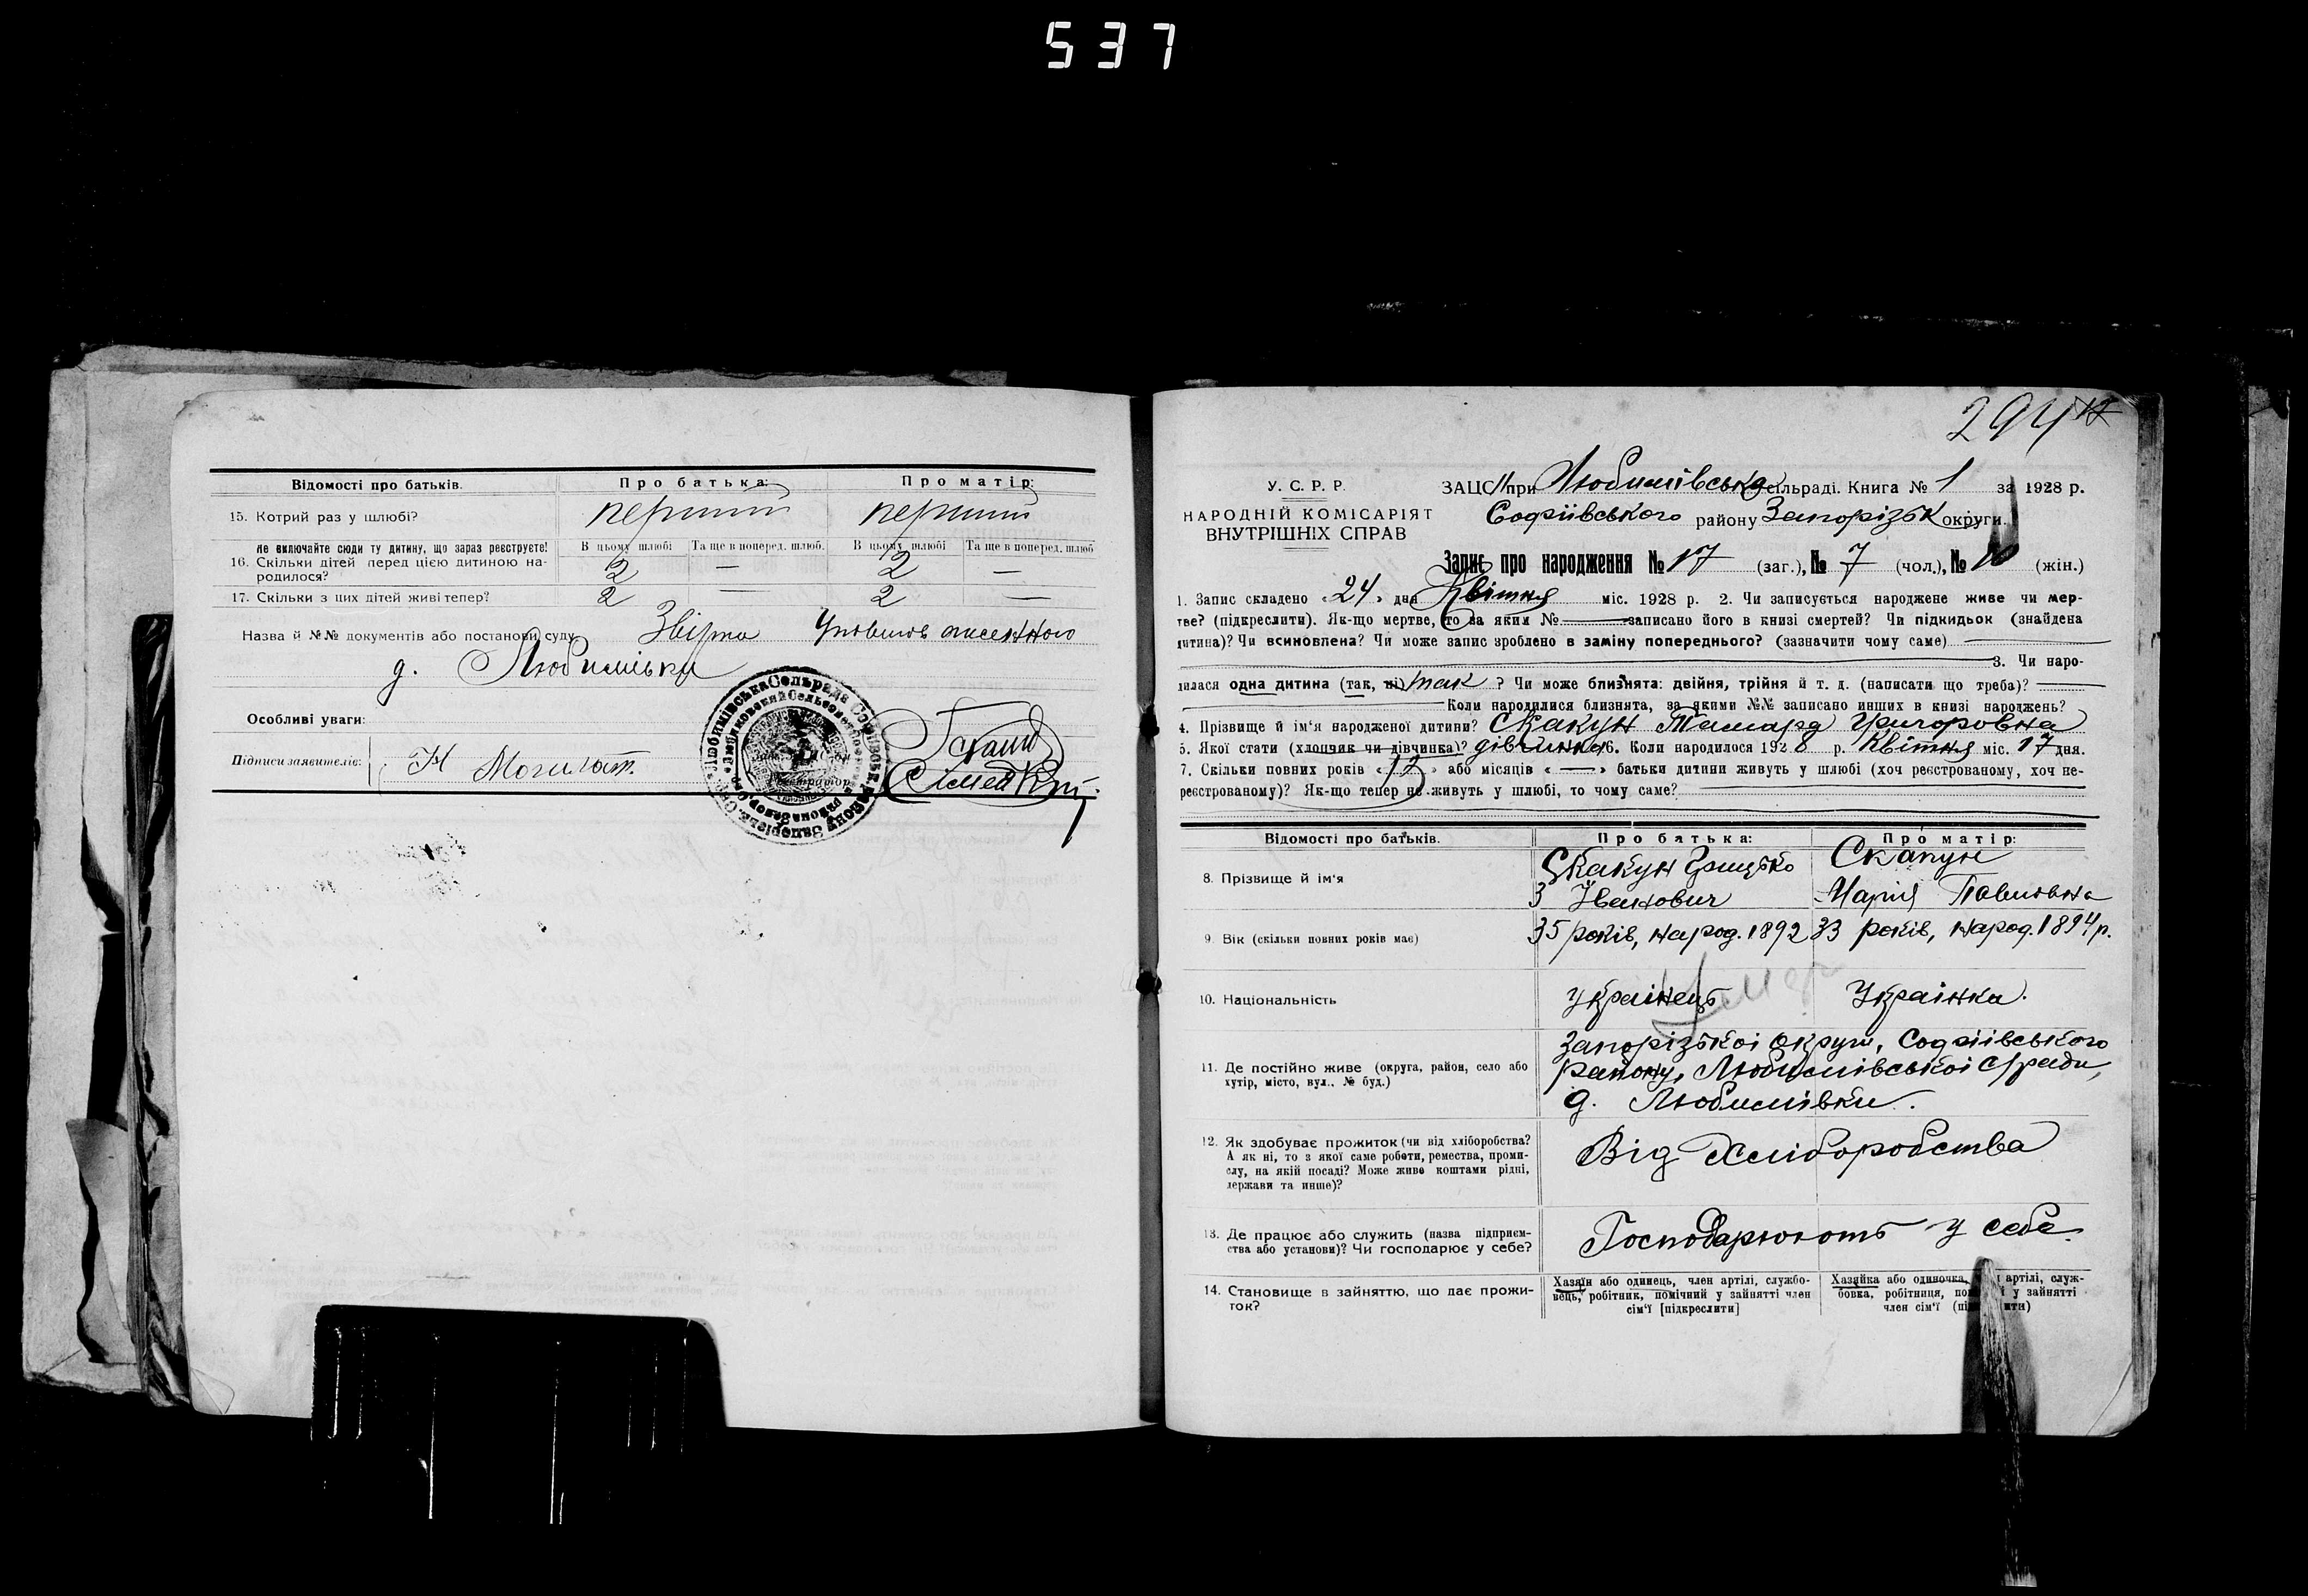 537
Відомості про батьків. Про батька: Про матір:
15. Котрий раз у шлюбі? перший перший
Не включайте сюди ту дитину, що зараз реєструєте! В цьому шлюбі Та ще в поперед. шлюб. В цьому шлюбі Та ще в поперед. шлюб
16. Скільки дітей перед цією дитиною на- 2 — 2 —
родилося?
17. Скільки з цих дітей живі тепер? 2 — 2 —
Назва й №№ документів або постанови суду
д. Любимівки
Особливі уваги:
Підписи заявителів:
Любимівська Сельрада Софіївськ. району Запорізьк. Окр.
294
У. С. Р. Р.
НАРОДНІЙ КОМІСАРІЯТ
ВНУТРІШНІХ СПРАВ
ЗАЦС при Любимівська сільраді. Книга № 1 за 1928 р.
Софіївського району Запорізьк округи.
Запис про народження № 17 (заг.), № 7 (чол.), № 10 (жін.)
1. Запис складено «24» дня Квітня міс. 1928 р. 2. Чи записується народжене живе чи мер-
тве? (підкреслити). Як-що мертве, то за яким № — записано його в книзі смертей? Чи підкидьок (знайдена
дитина)? Чи всиновлена? Чи може запис зроблено в заміну попереднього? (зазначити чому саме)
3. Чи наро-
дилася одна дитина (так, ні) так ? Чи може близнята: двійня, трійня й т. д. (написати що треба)? —
— Коли народилися близнята, за якими №№ записано инших в книзі народжень?
4. Прізвище й ім'я народженої дитини? Скакун Тамара Григоровна
5. Якої стати (хлопчик чи дівчинка)? дівчинка 6. Коли народилося 1928 р. Квітня міс. 17 дня.
7. Скільки повних років «12» або місяців «—» батьки дитини живуть у шлюбі (хоч реєстрованому, хоч не-
реєстрованому)? Як-що тепер не живуть у шлюбі, то чому саме?
Відомості про батьків. Про батька: Про матір:
8. Прізвище й ім'я Скакун Грицько Скакун
Іванович Марія Павловна
9. Вік (скільки повних років має) 35 років, народ. 1892 33 років, народ. 1894 р.
10. Національність Українець Українка.
11. Де постійно живе (округа, район, село або
хутір, місто, вул., № буд.)
Запорізької округи, Софіївського
району, Любимівської с/ради,
д. Любимівки.
12. Як здобуває прожиток (чи від хліборобства?
А як ні, то з якої саме роботи, ремества, проми-
слу, на якій посаді? Може живе коштами рідні,
держави та инше)?
Від Хліборобства
13. Де працює або служить (назва підприєм-
ства або установи)? Чи господарює у себе?
Господарюють у себе.
14. Становище в зайняттю, що дає прожи-
ток?
Хазяїн або одинець, член артілі, службо-
вець, робітник, помічний у зайнятті член
сім'ї [підкреслити]
Хазяйка або одиночка, артілі, служ-
бовка, робітниця, у зайнятті
член сім'ї